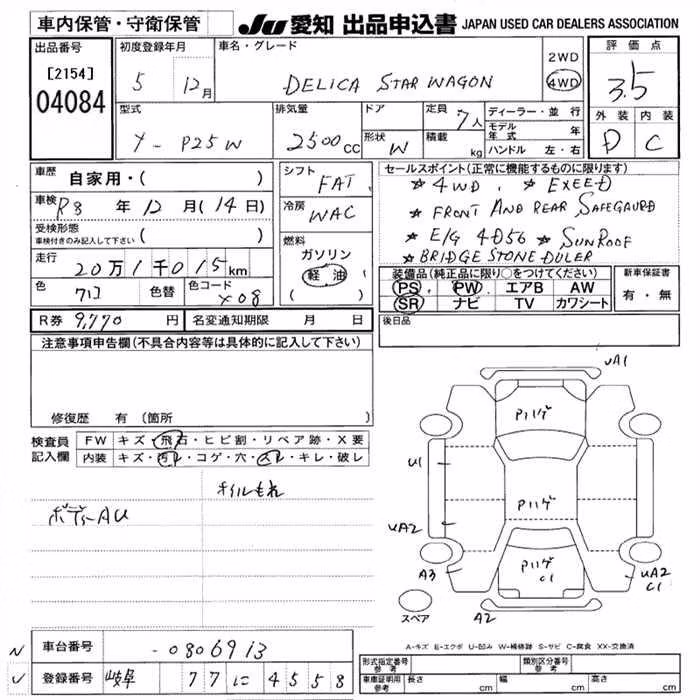 車内保管・守衛保管
JU 愛知 出品申込書 JAPAN USED CAR DEALERS ASSOCIATION
出品番号
[2154]
04084
初度登録年月
5 12月
車名・グレード
DELICA STAR WAGON
2WD
4WD
評価点
3.5
外装 内装
D C
型式
Y-P25W
排気量
2500cc
ドア
形状 W
定員 7人
積載 kg
ディーラー・並行
モデル年式 年
ハンドル 左・右
車歴 自家用・( )
車検 R8年12月(14日)
受検形態
車検付きのみ記入して下さい ( )
走行 20万1千015km
色 色替 色コード X08
シフト FAT
冷房 WAC
燃料
ガソリン
軽油
( )
セールスポイント(正常に機能するものに限ります)
★4WD, ★EXEED
★FRONT AND REAR SAFEGAURD
★E/G 4D56 ★SUNROOF
★BRIDGESTONE DULER
装備品(純正品に限り○をつけてください)
PS PW エアB AW
SR ナビ TV カワシート
新車保証書
有・無
R券 9,770円 名変通知期限 月 日
後日品
注意事項申告欄(不具合内容等は具体的に記入して下さい)
修復歴 有(箇所 )
検査員記入欄
FW キズ・飛石・ヒビ割・リペア跡・X要
内装 キズ・汚レ・コゲ・穴・スレ・キレ・破レ
オイルもれ
ボディーAU
UA1
Pハゲ
U1
Pハゲ
UA2
Pハゲ
C1
A3
UA2
C1
A2
スペア
A-キズ E-エクボ U-凹み W-補修跡 S-サビ C-腐食 XX-交換済
車台番号 -0806913
登録番号 岐阜 77 に 4558
形式指定番号 参考
類別区分番号 参考
車庫証明用 参考 長さ cm 幅 cm 高さ cm